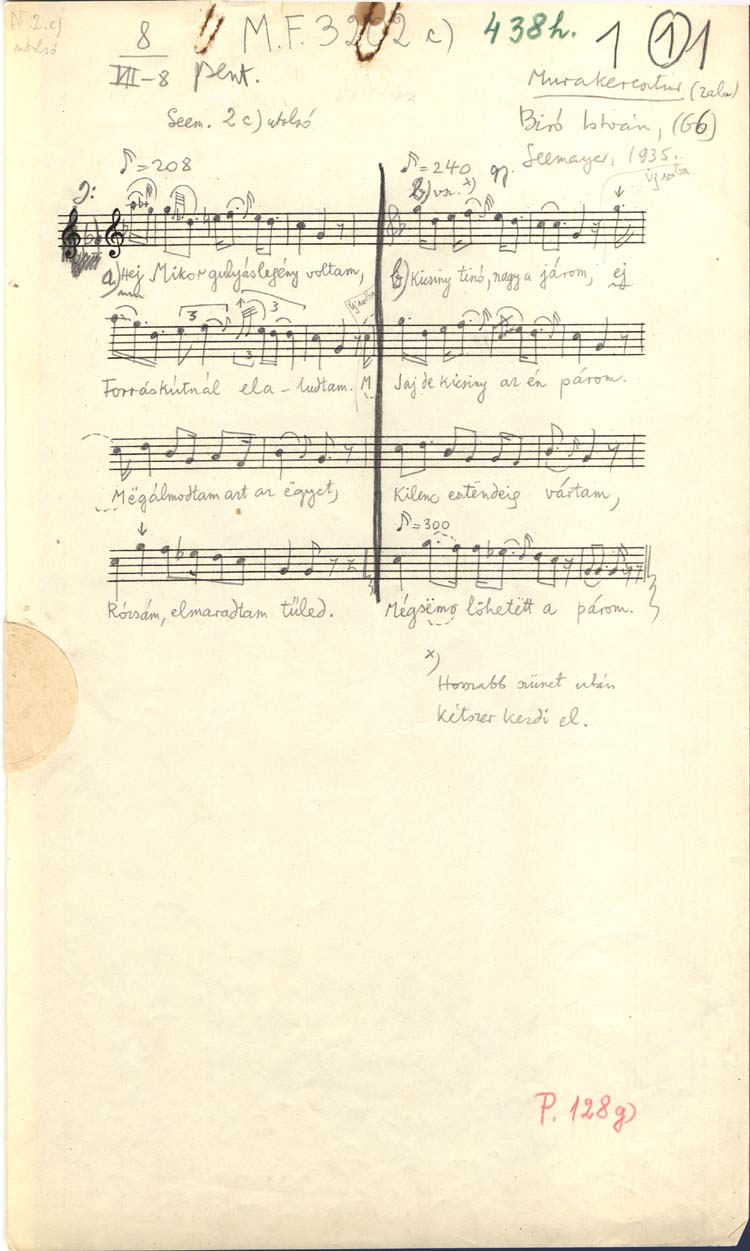 N. 2. c)
utolsó
8
VII-8
pent.
M.F. 32 2 c)
438h.
1 1 1
Murakeresztúr (Zala)
Seem. 2 c) utolsó
Biró István, (66)
Seemayer, 1935.
♪=208
♪=240
b) vsz. x)
új sorba
a) Hej Mikor gulyáslegény voltam,
b) Kicsiny tinó, nagy a járom, ej
3 3 3
új sorba
Forráskútnál ela-ludtam. M
Jaj de kicsiny az én párom.
Mëgálmodtam azt az ëgyet,
Kilenc esztëndeig vártam,
♪=300
Rózsám, elmaradtam tűled.
Mégsëmö löhetëtt a párom.
x)
Hosszabb szünet után
kétszer kezdi el.
P. 128g)